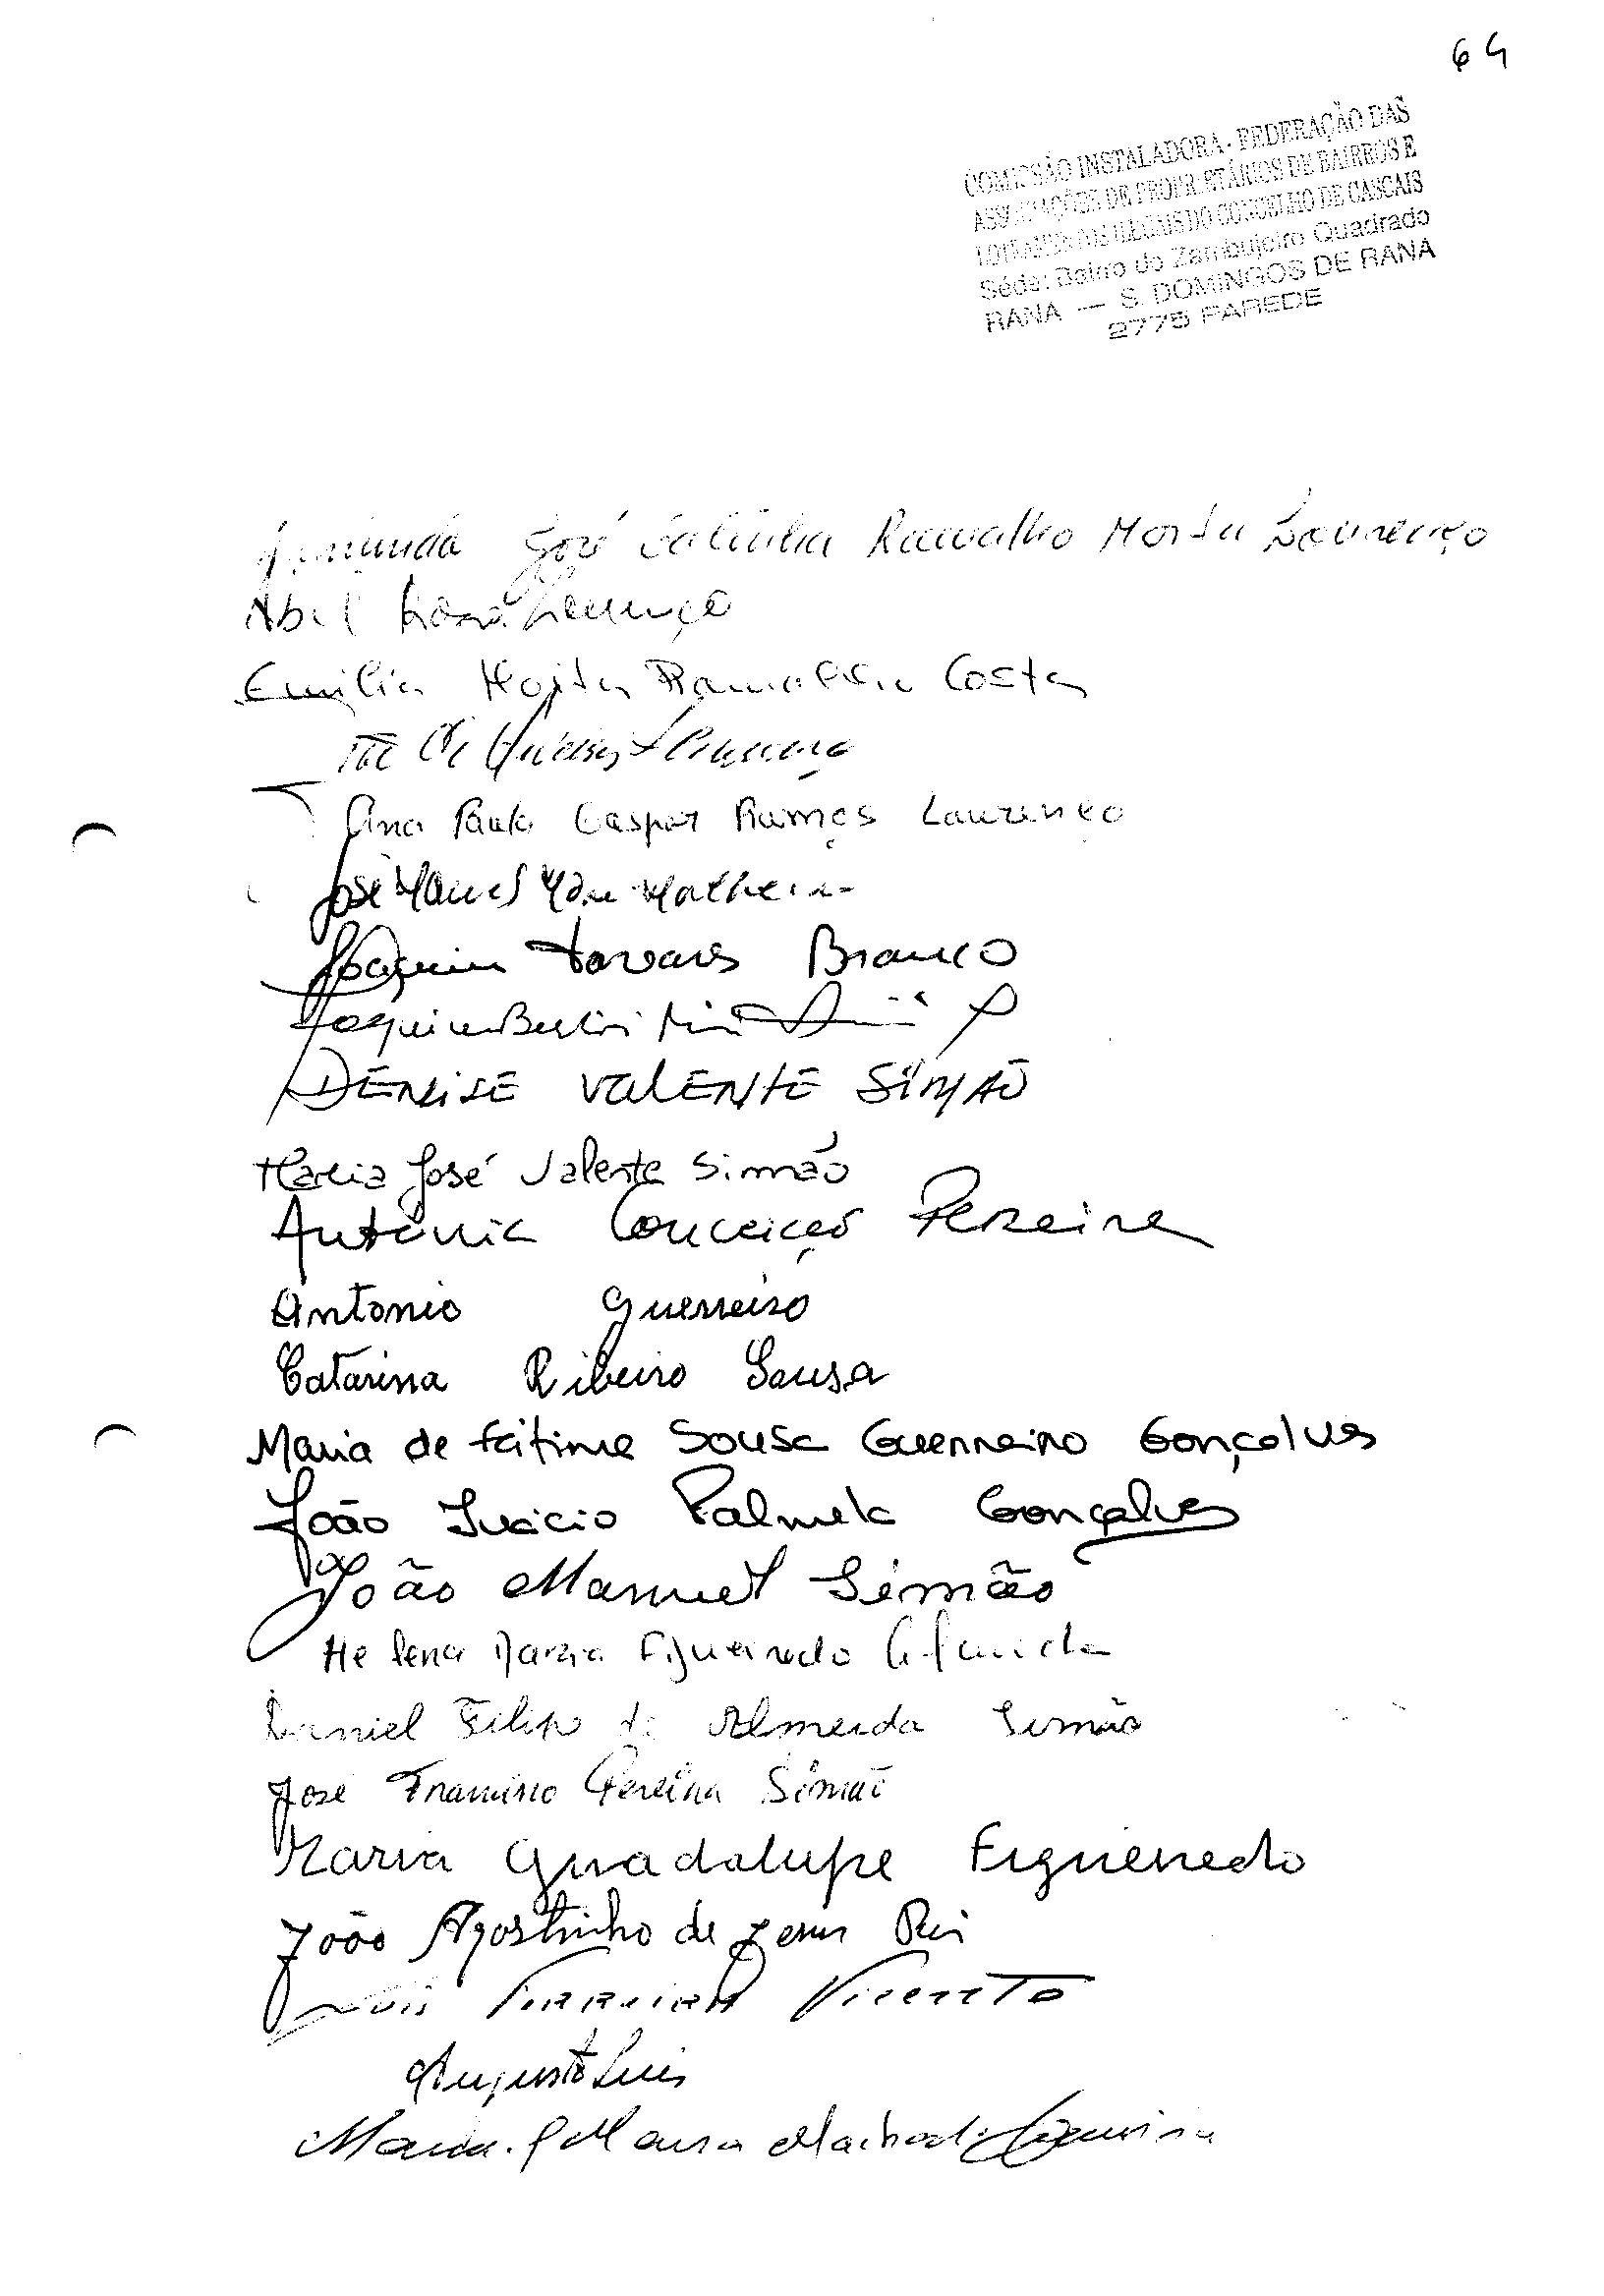 64
COMISSÃO INSTALADORA - FEDERAÇÃO DAS
ASSOCIAÇÕES DE PROPRIETÁRIOS DE BAIRROS E
LOTEAMENTOS ILEGAIS DO CONCELHO DE CASCAIS
Séde: Bairro do Zambujeiro Quadrado
RANA — S. DOMINGOS DE RANA
2775 PAREDE
José Ramalho Horta Lourenço
Abil
Emilia Horta Ramalho Costa
Ana Paula Gaspar Ramos Lourenço
José Manuel
Joaquim Tavares Branco
Joaquim
DENISE VALENTE SIMÃO
Maria José Valente Simão
Antónia Conceição Pereira
Antonio Guerreiro
Catarina Ribeiro Sousa
Maria de Fátima Sousa Guerreiro Gonçalves
João Inácio Palmela Gonçalves
João Manuel Simão
Helena Maria Figueiredo Almeida
Daniel Filipe de Almeida Simão
José Francisco Pereira Simão
Maria Guadalupe Figueiredo
João Agostinho de Jesus Rei
Luis Ferreira Vicente
Augusto Luis
Maria Machado